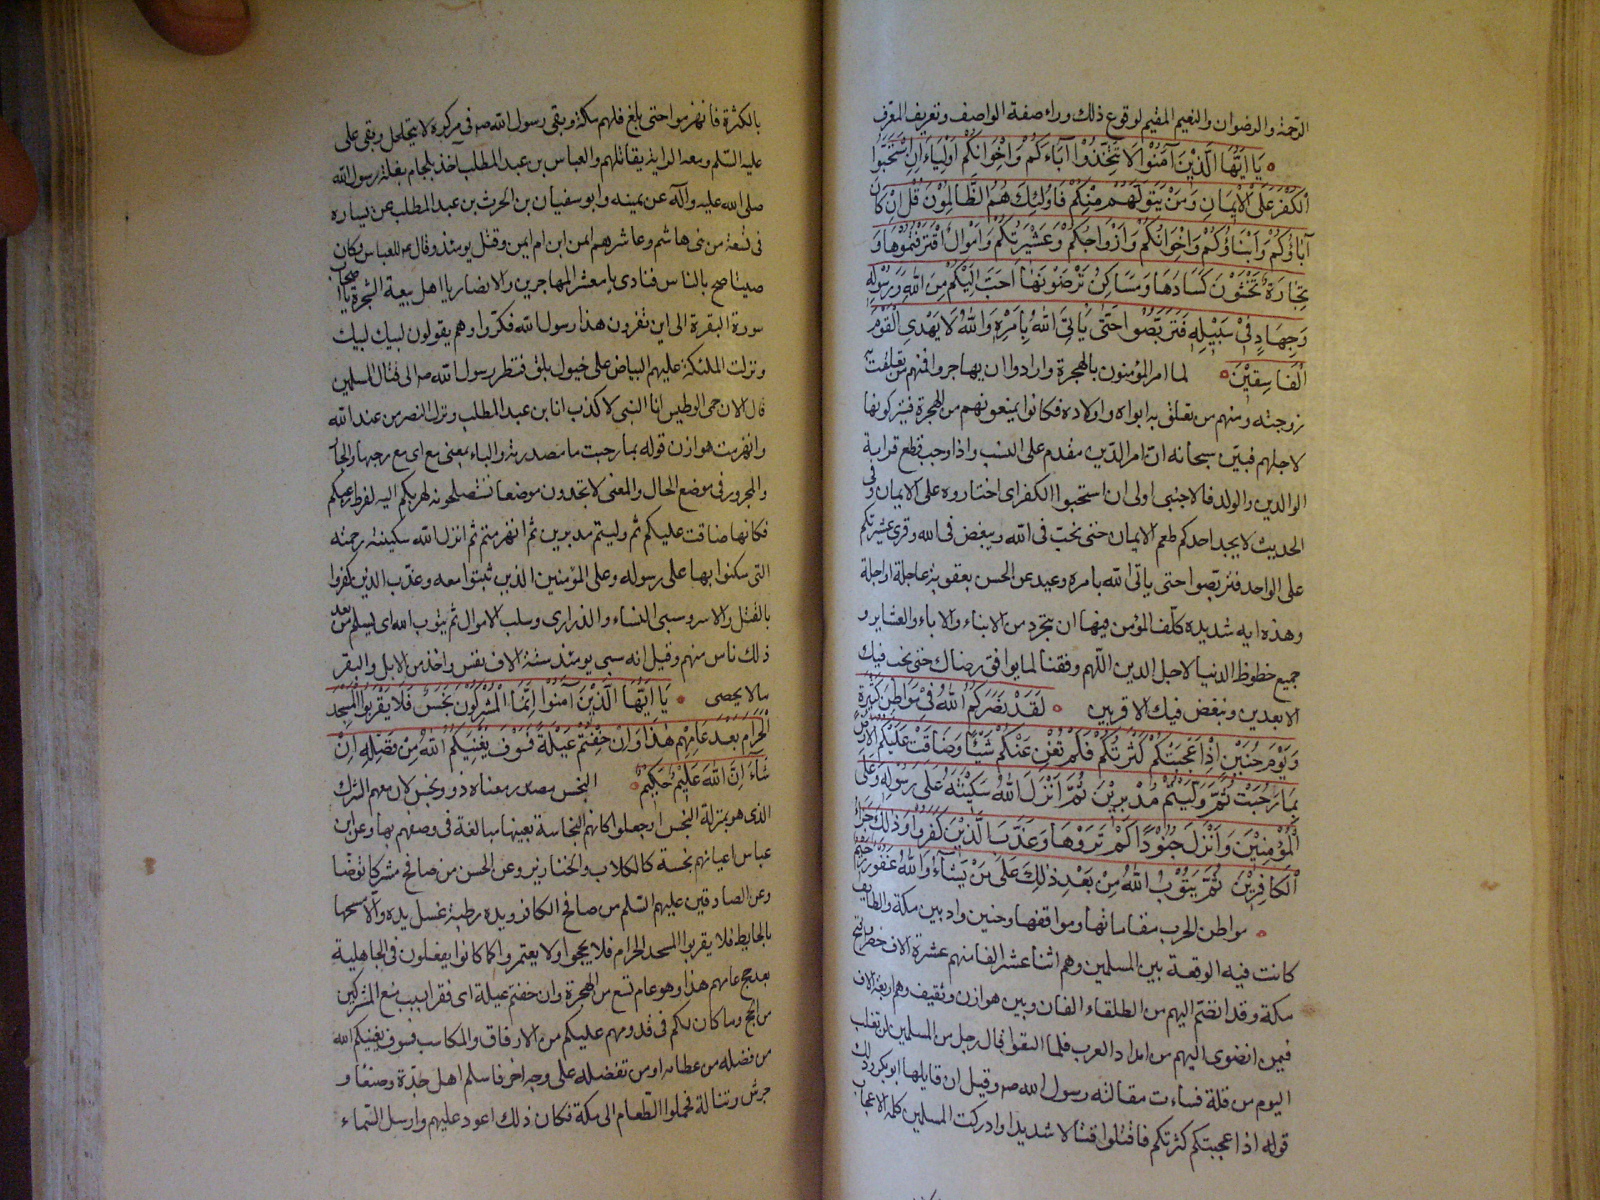 الرحمة والرضوان والنعيم المقيم لوقوع ذلك وراء صفة الواصف وتعريف المعرف
يَا اَيُّهَا الَّذِينَ آمَنُوا لَا تَتَّخِذُوا آبَاءَكُمْ وَاِخْوَانَكُمْ اَوْلِيَاءَ اِنِ اسْتَحَبُّوا
الْكُفْرَ عَلَى الْاِيمَانِ وَمَنْ يَتَوَلَّهُمْ مِنْكُمْ فَاُولٰئِكَ هُمُ الظَّالِمُونَ قُلْ اِنْ كَانَ
آبَاؤُكُمْ وَاَبْنَاؤُكُمْ وَاِخْوَانُكُمْ وَاَزْوَاجُكُمْ وَعَشِيرَتُكُمْ وَاَمْوَالٌ اقْتَرَفْتُمُوهَا وَ
تِجَارَةٌ تَخْشَوْنَ كَسَادَهَا وَمَسَاكِنُ تَرْضَوْنَهَا اَحَبَّ اِلَيْكُمْ مِنَ اللّٰهِ وَرَسُولِهِ
وَجِهَادٍ فِي سَبِيلِهِ فَتَرَبَّصُوا حَتَّى يَاْتِيَ اللّٰهُ بِاَمْرِهِ وَاللّٰهُ لَا يَهْدِي الْقَوْمَ
الْفَاسِقِينَ لما امر المؤمنون بالهجرة وارادوا ان يهاجروا فمنهم من تعلقت به
زوجته ومنهم من تعلق به ابواه واولاده فكانوا يمنعونهم من الهجرة فيتركونها
لاجلهم فبين سبحانه ان امر الدين مقدم على النسب واذا وجب قطع قرابة
الوالدين والولد فالاجنبي اولى ان استحبوا الكفر اى اختاروه على الايمان وفى
الحديث لا يجد احدكم طعم الايمان حتى يحب فى الله ويبغض فى الله وقرئ عشيرتكم
على الواحد فتربصوا حتى ياتى الله بامره وعيد عن الحسن بعقوبة عاجلة او اجلة
وهذه اية شديدة كلف المؤمن فيها ان يتجرد من الابناء والاباء والعشاير و
جميع حظوظ الدنيا لاجل الدين اللهم وفقنا لما يوافق رضاك حتى نحب فيك
الابعدين ونبغض فيك الاقربين لَقَدْ نَصَرَكُمُ اللّٰهُ فِي مَوَاطِنَ كَثِيرَةٍ
وَيَوْمَ حُنَيْنٍ اِذْ اَعْجَبَتْكُمْ كَثْرَتُكُمْ فَلَمْ تُغْنِ عَنْكُمْ شَيْئًا وَضَاقَتْ عَلَيْكُمُ الْاَرْضُ
بِمَا رَحُبَتْ ثُمَّ وَلَّيْتُمْ مُدْبِرِينَ ثُمَّ اَنْزَلَ اللّٰهُ سَكِينَتَهُ عَلَى رَسُولِهِ وَعَلَى
الْمُؤْمِنِينَ وَاَنْزَلَ جُنُودًا لَمْ تَرَوْهَا وَعَذَّبَ الَّذِينَ كَفَرُوا وَذٰلِكَ جَزَاءُ
الْكَافِرِينَ ثُمَّ يَتُوبُ اللّٰهُ مِنْ بَعْدِ ذٰلِكَ عَلَى مَنْ يَشَاءُ وَاللّٰهُ غَفُورٌ رَحِيمٌ
مواطن الحرب مقاماتها ومواقفها وحنين واد بين مكة والطايف
كانت فيه الوقعة بين المسلمين وهم اثنا عشر الفا منهم عشرة الاف حضروا فتح
مكة وقد انضم اليهم من الطلقاء الفان وبين هوازن وثقيف وهم اربعة الاف
فيمن انضوى اليهم من امداد العرب فلما التقوا قال رجل من المسلمين لن نغلب
اليوم من قلة فساءت مقالته رسول الله ص وقيل ان قايلها ابو بكر وذلك
قوله اذ اعجبتكم كثرتكم فاقتتلوا قتالا شديدا وادركت المسلمين كلمة الاعجاب
بالكثرة فانهزموا حتى بلغ فلهم مكة وبقى رسول الله ص فى مركزه لا يتحلحل وبقى على
عليه السلم ومعه الراية يقاتلهم والعباس بن عبد المطلب اخذ بلجام بغلة رسول الله
صلى الله عليه وآله عن يمينه وابو سفيان بن الحرث بن عبد المطلب عن يساره
فى تسعة من بنى هاشم وعاشرهم ايمن ابن ام ايمن وقتل يومئذ وقال ص للعباس وكان
صيتا صح بالناس فنادى يا معشر المهاجرين والانصار يا اهل بيعة الشجرة يا اصحاب
سورة البقرة الى اين تفرون هذا رسول الله فكروا وهم يقولون لبيك لبيك
ونزلت الملئكة عليهم البياض على خيول بلق فنظر رسول الله ص الى قتال المسلمين
قال الان حمى الوطيس انا النبى لا كذب انا بن عبد المطلب ونزل النصر من عند الله
وانهزمت هوازن قوله بما رحبت ما مصدرية والباء بمعنى مع اى مع رحبها والجار
والمجرور فى موضع الحال والمعنى لا تجدون موضعا تستصلحونه لهربكم اليه لفرط رعبكم
فكانها ضاقت عليكم ثم وليتم مدبرين ثم انهزمتم ثم انزل الله سكينته رحمته
التى سكنوا بها على رسوله وعلى المؤمنين الذين ثبتوا معه وعذب الذين كفروا
بالقتل والاسر وسبى النساء والذرارى وسلب الاموال ثم يتوب الله اى يسلم بعد
ذلك ناس منهم وقيل انه سبى يومئذ ستة الاف نفس واخذ من الابل والبقر
ما لا يحصى يَا اَيُّهَا الَّذِينَ آمَنُوا اِنَّمَا الْمُشْرِكُونَ نَجَسٌ فَلَا يَقْرَبُوا الْمَسْجِدَ
الْحَرَامَ بَعْدَ عَامِهِمْ هٰذَا وَاِنْ خِفْتُمْ عَيْلَةً فَسَوْفَ يُغْنِيكُمُ اللّٰهُ مِنْ فَضْلِهِ اِنْ
شَاءَ اِنَّ اللّٰهَ عَلِيمٌ حَكِيمٌ النجس مصدر معناه ذوو نجس لان معهم الشرك
الذى هو بمنزلة النجس او جعلوا كانهم النجاسة بعينها مبالغة فى وصفهم بها وعن ابن
عباس اعيانهم نجسة كالكلاب والخنازير وعن الحسن من صافح مشركا توضا
وعن الصادقين عليهم السلم من صافح الكافر ويده رطبة غسل يده والا مسحها
بالحايط فلا يقربوا المسجد الحرام فلا يحجوا ولا يعتمروا كما كانوا يفعلون فى الجاهلية
بعد حج عامهم هذا وهو عام تسع من الهجرة وان خفتم عيلة اى فقرا بسبب منع المشركين
من الحج وما كان لكم فى قدومهم عليكم من الارفاق والمكاسب فسوف يغنيكم الله
من فضله من عطائه او من تفضله على وجه اخر فاسلم اهل جدة وصنعا و
جرش وتبالة فحملوا الطعام الى مكة فكان ذلك اعود عليهم وارسل السماء